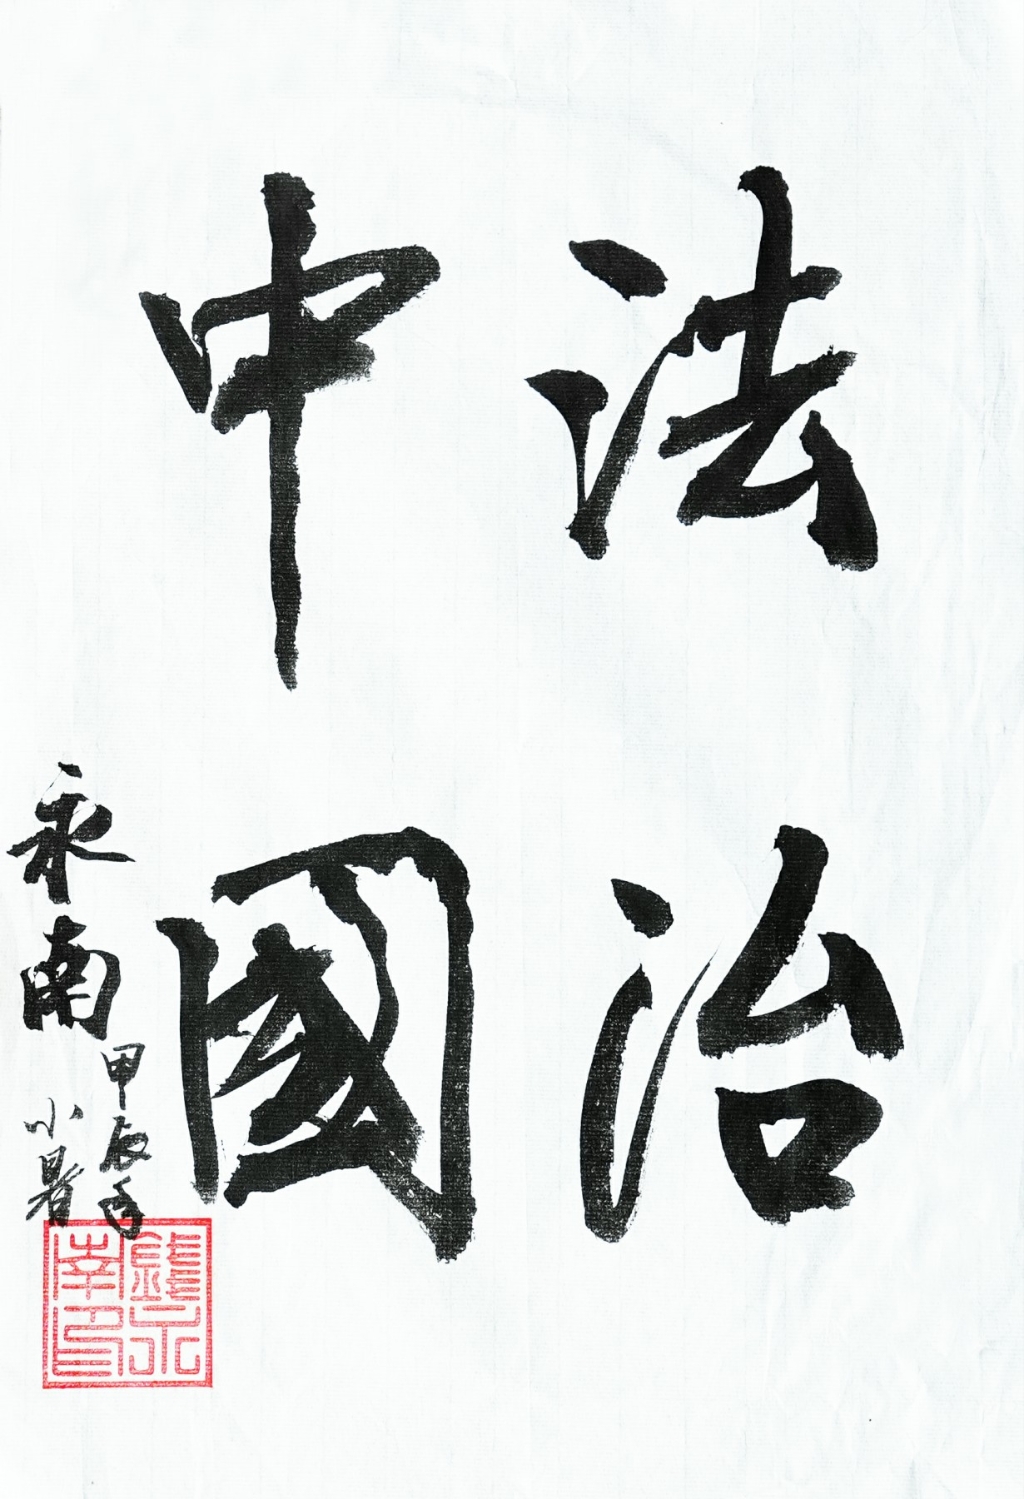 法治
中國
永南
甲辰年
小暑